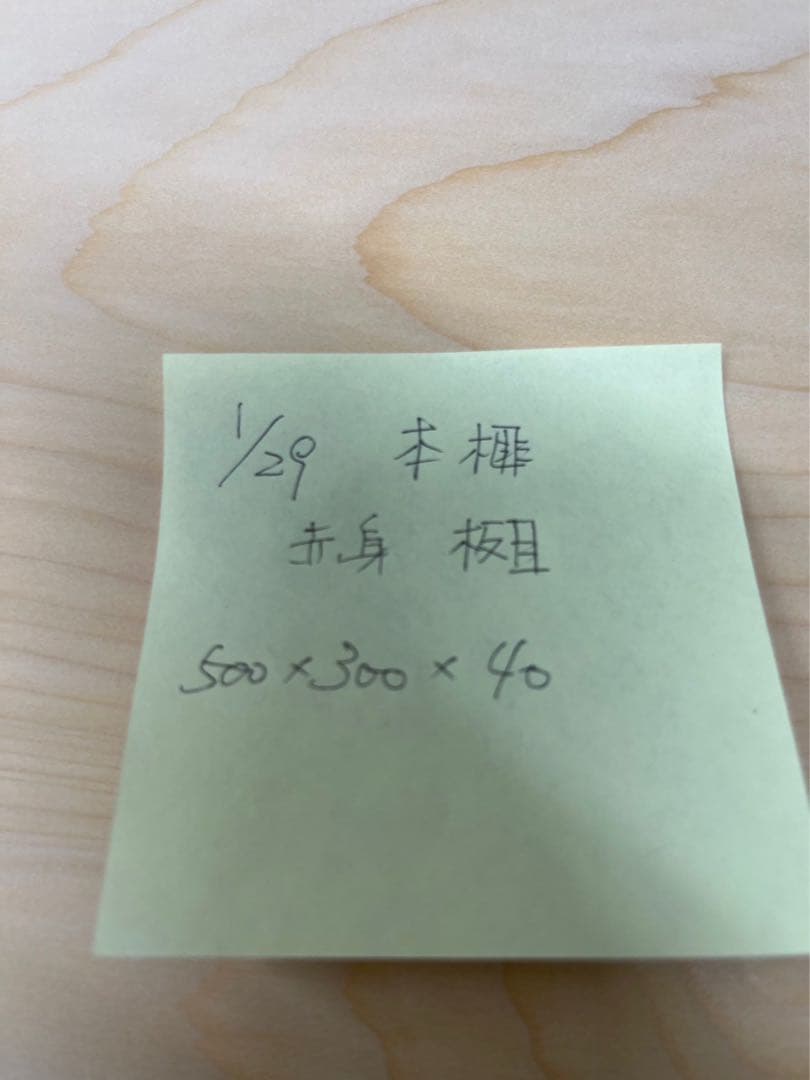 1/29 本榧
赤身 板目
500×300×40